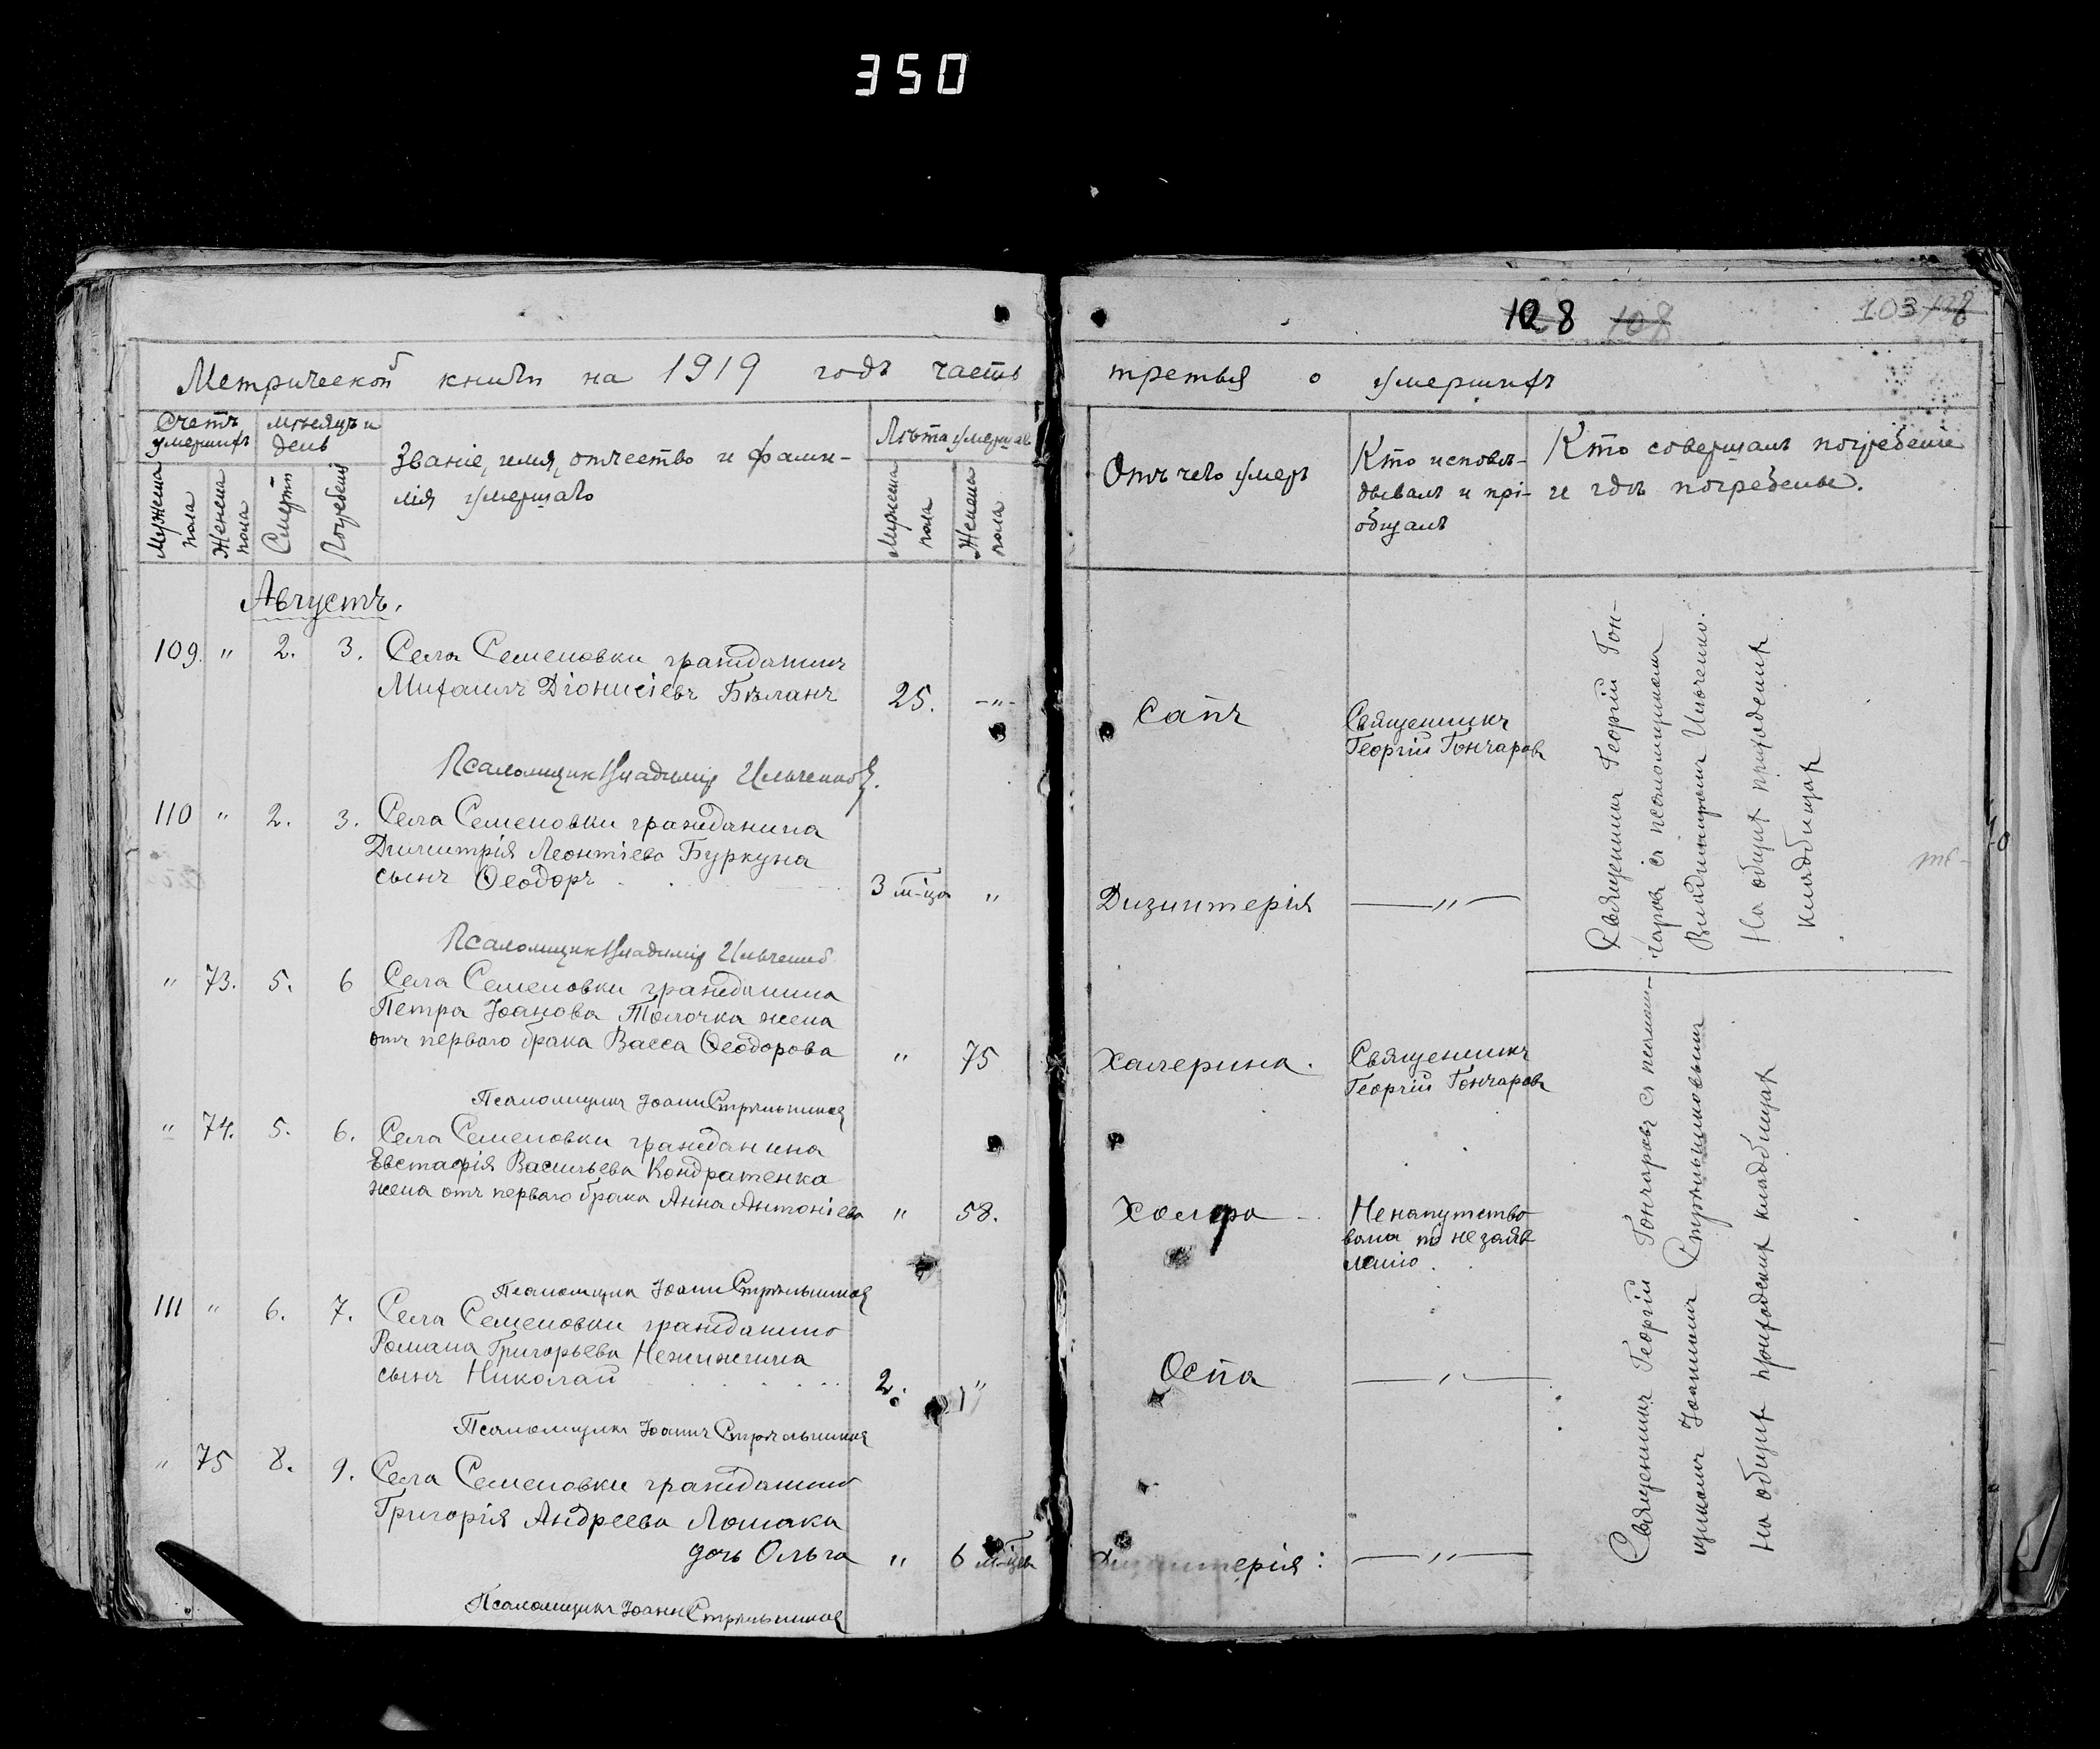 350
128 108 103
Метрической книги на 1919 годъ часть
третья о умершихъ
Счетъ умершихъ
Мѣсяцъ и день
Званіе, имя, отчество и фами-
лія умершаго
Лѣта умершаго
Мужеска пола
Женска пола
Смерти
Погребенія
Мужеска пола
Женска пола
Отъ чего умеръ
Кто исповѣ-
дывалъ и прі-
общалъ
Кто совершалъ погребеніе
и гдѣ погребены.
Августъ.
109. " 2. 3. Села Семеновки гражданинъ
Михаилъ Діонисіевъ Бѣланъ 25. -"-
Сапъ
Священникъ
Георгій Гончаровъ
Псаломщикъ Владиміръ Ильченко
110 " 2. 3. Села Семеновки гражданина
Димитрія Леонтіева Буркуна
сынъ Ѳеодоръ 3 м-ца "
Дизинтерія —"—
Псаломщикъ Владиміръ Ильченко
Священникъ Георгій Гон-
чаровъ съ псаломщикомъ
Владиміромъ Ильченко.
На общихъ приходскихъ
кладбищахъ
" 73. 5. 6 Села Семеновки гражданина
Петра Іоанова Толочка жена
отъ перваго брака Васса Ѳеодорова " 75
Халерина.
Священникъ
Георгій Гончаровъ
Псаломщикъ Іоаннъ Стрѣльниковъ
" 74. 5. 6. Села Семеновки гражданина
Евстафія Васильева Кондратенка
жена отъ перваго брака Анна Антоніева " 58.
Холера
Ненапутство
вана по незаяв
ленію.
Псаломщикъ Іоаннъ Стрѣльниковъ
111 " 6. 7. Села Семеновки гражданина
Романа Григорьева Нежижима
сынъ Николай 2. "
Оспа —"—
Псаломщикъ Іоаннъ Стрѣльниковъ
" 75 8. 9. Села Семеновки гражданина
Григорія Андреева Лошака
дочь Ольга " 6 м-цев
Дизинтерія: —"—
Псаломщикъ Іоаннъ Стрѣльниковъ
Священникъ Георгій Гончаровъ съ псалом-
щикомъ Іоанномъ Стрѣльниковымъ
На общихъ приходскихъ кладбищахъ